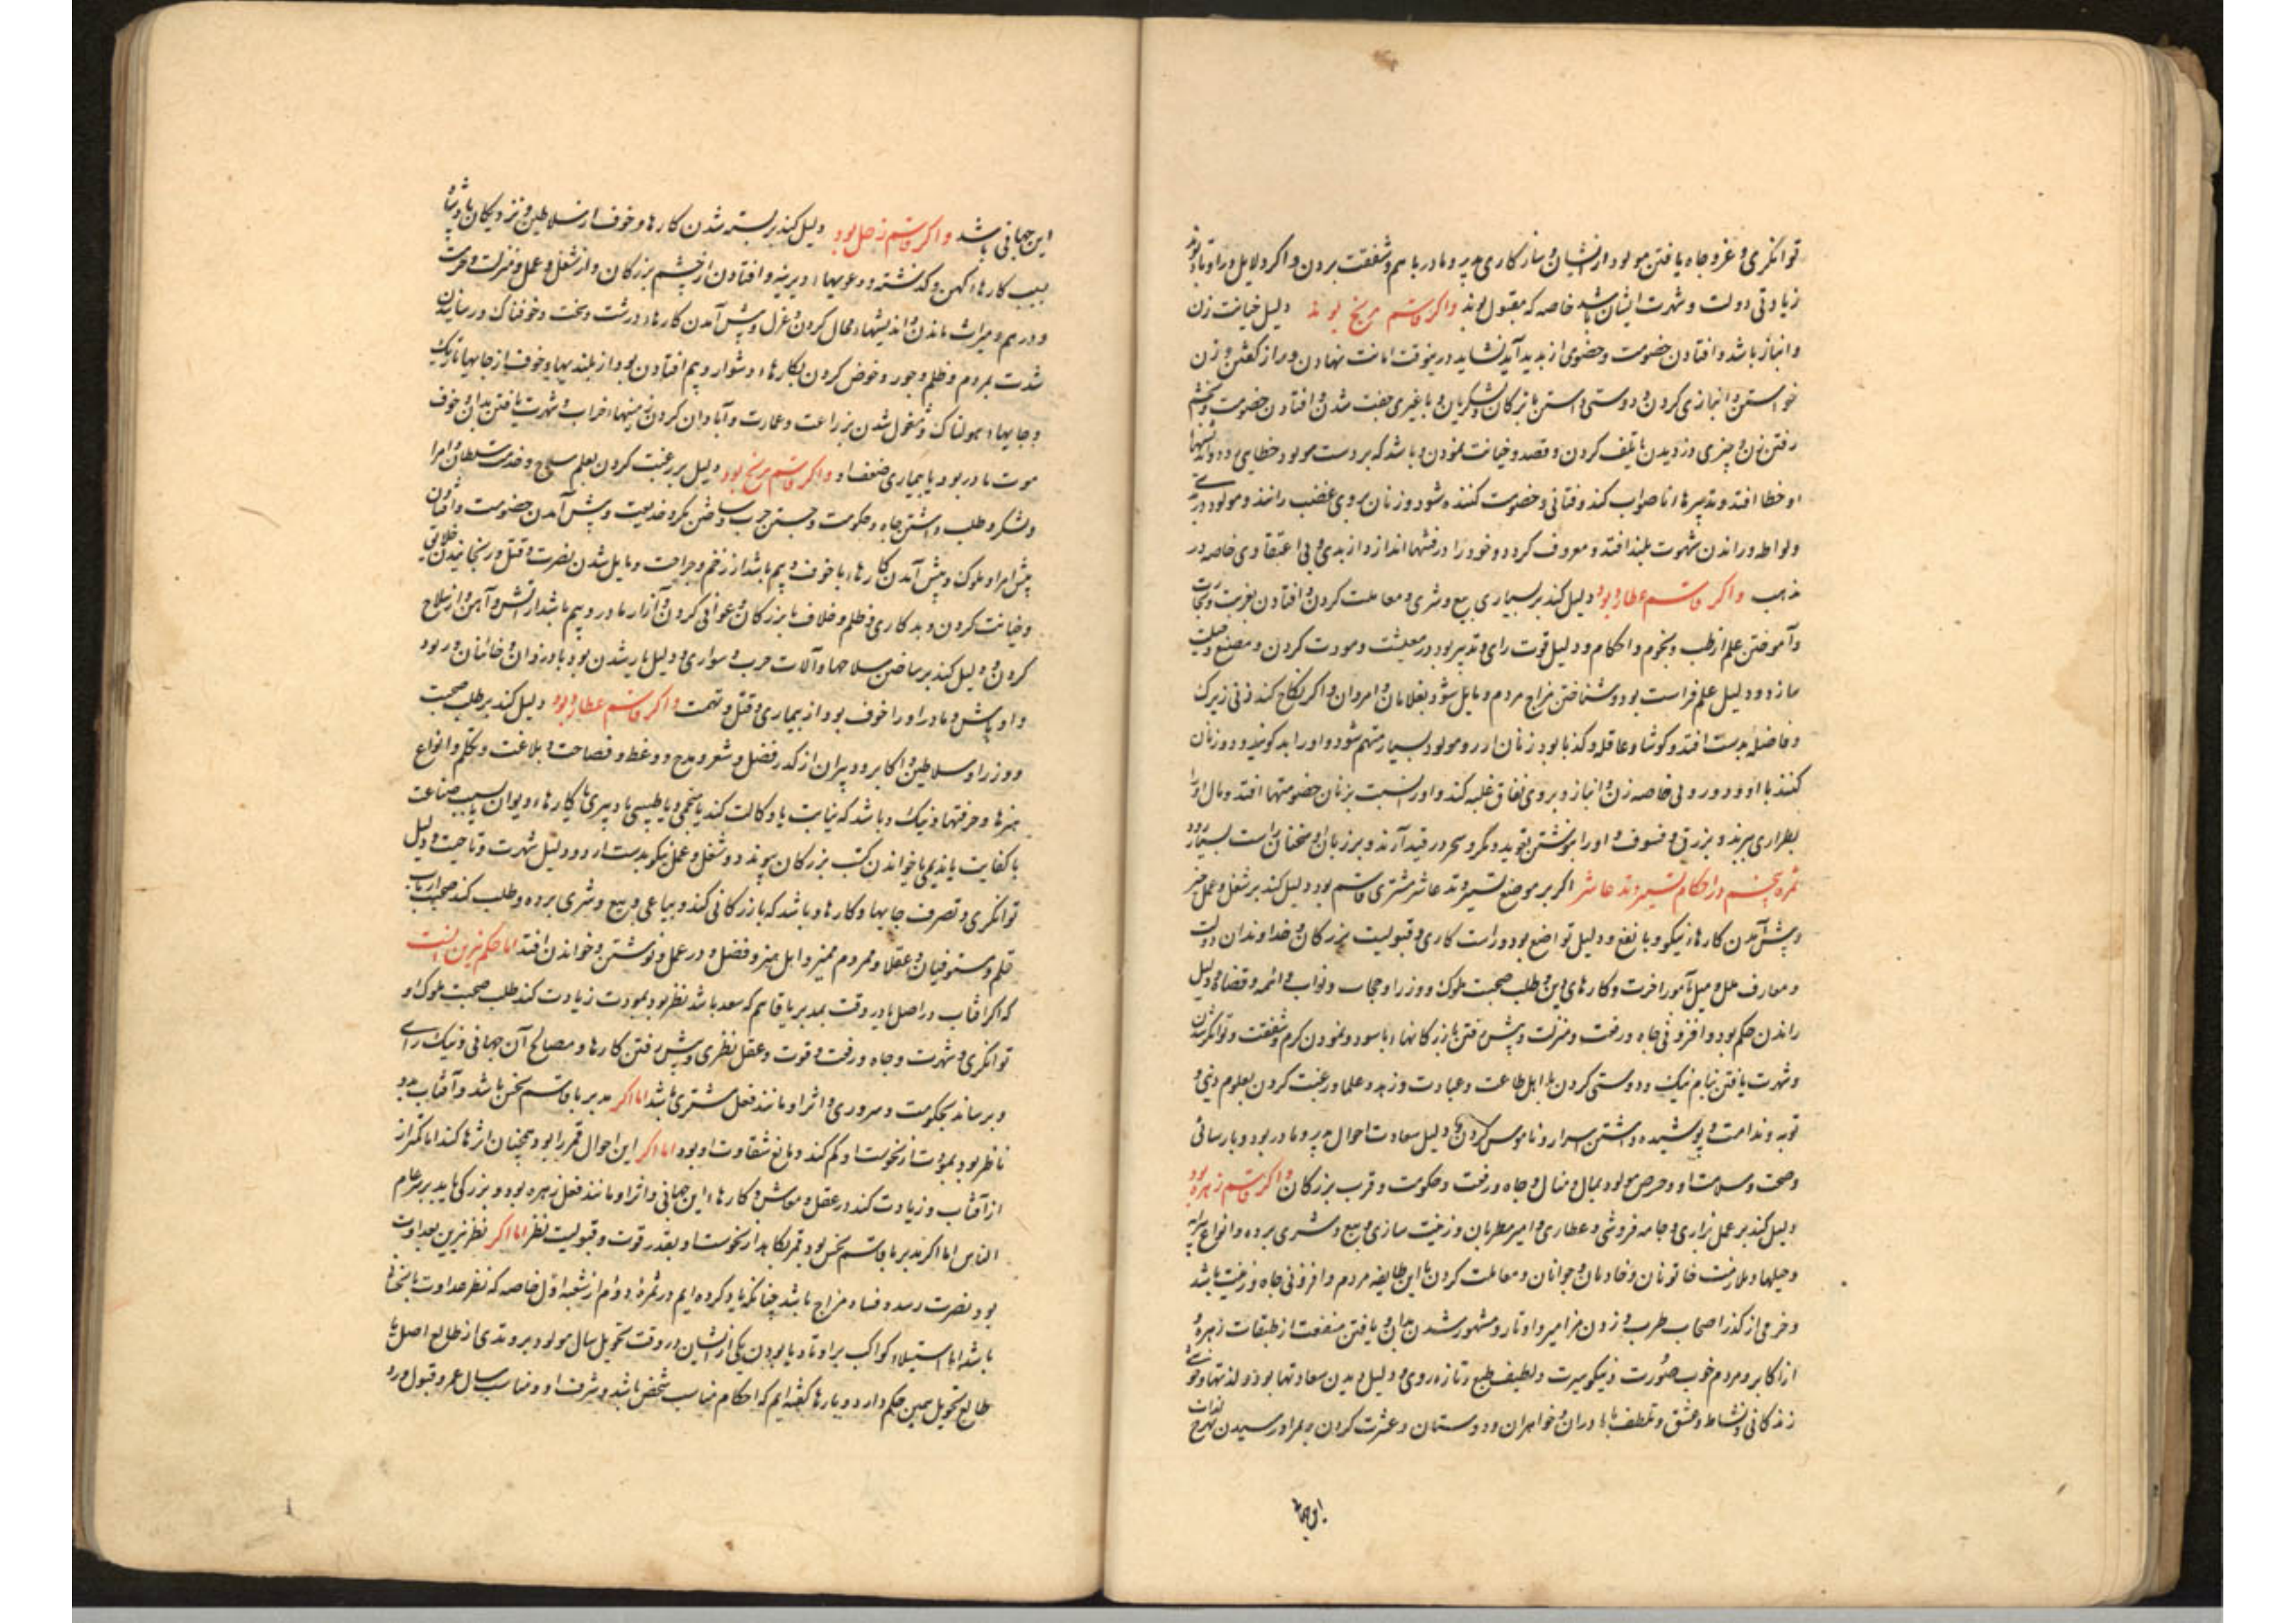 توانکری و عز و جاه یافتن مولود از ایشان و سازکاری پدر و مادر با هم و شفقت بردن و اکر دلایل در اوتاد بوند
زیادتی دولت و شهرت ایشان باشد خاصه که مقبول بوند واکر قاسم مریخ بوند دلیل خیانت زن
و انباز باشد و افتادن خصومت و خصوی از پدید آید نشاید درین وقت امانت نهادن و راز کفتن و زن
خواستن و انبازی کردن و دوستی داشتن با ترکان و لشکریان و با غیری جفت شدن و افتادن خصومت و بخشم
رفتن زن و چیزی دزدیدن یا تلف کردن و قصد و خیانت نمودن و باشد که بر دست مولود خطایی رود و اندیشهاء
او خطا افتد و تدبیرهاء ناصواب کند و فتانی و خصومت کننده شود و زنان بر وی غضب رانند و مولود در
ولواطه و راندن شهوت بلند افتد و معروف کردد و خود را در فتنها اندازد از بدی و بی اعتقادی خاصه در
مذهب واکر قاسم عطارد بود دلیل کند بر بسیاری بیع و شری و معاملت کردن و افتادن بغربت و تجارت
و آموختن علم از طب و نجوم و احکام و دلیل قوت رای و تدبیر بود در معیشت و مودت کردن و مصنع و حیلت
سازد و دلیل علم فراست بود و شناختن مزاج مردم و مایل شود بغلامان و امردان و اکر نکاح کند زنی زیرک
و فاضله بدست افتد و کوشا و عاقله و کذبا بود زنان از رو مولود بسیار متهم شود و او را بد کویند و زنان
کنند با او و درونی خاصه زن و انباز و بر وی نفاق غلبه کند و او را نسبت بزنان خصومتها افتد و مال او را
بطراری ببرند و بزرق و فسوف و او را بنوشتن تعوید و مکر و سحر در قید آرند و بر زبان او سخنان راست بسیار رود
ثمره پنجم در احکام تسییر وتد عاشر اکر بر موضع تسییر وتد عاشر مشتری قاسم بود دلیل کند بر شغل و عمل خیر
و پیش آمدن کارهاء نیکو و با نفع و دلیل تواضع بود و راست کاری و قبولیت بزرکان و خداوندان دولت
و معارف علل و میل بآمور آخرت و کارهای دین و طلب صحبت ملوک و وزرا و حجاب و نواب و ائمه و قضاة و دلیل
راندن حکم بود و افزونی جاه و رفعت و منزلت و پیش رفتن بازرکانیهاء با سود و نمودن کرم و شفقت و توانکر شدن
و شهرت یافتن بنام نیک و دوستی کردن با اهل طاعت و عبادت و زهد و علما و رغبت کردن بعلوم دینی و
توبه و ندامت و پوشیده داشتن اسرار و ناموس کردن و دلیل سعادت احوال پدر و مادر بود و پارسائی
و صحت و سلامت او و حرص مولود بمال و منال و جاه و رفعت و حکومت و قرب بزرکان واکر قاسم زهره بود
دلیل کند بر عمل بزازی و جامه فروشی و عطاری و امیر مطربان و زینت سازی و بیع و شری برده و انواع پیرایه
و حلیها و ملازمت خاتونان و خادمان و جوانان و معاملت کردن با این طایفه مردم و افزونی جاه و زینت باشد
و خرمی از کذر اصحاب طرب و زدن مزامیر و اوتار و مشهور شدن بدان و یافتن منفعت از طبقات زهره و
از اکابر و مردم خوب صورت و نیکو سیرت و لطیف طبع و تازه روی و دلیل دیدن سعادتها بود و لذتها و خوشی
زندکانی و نشاط و عشق و تلطف با مادران و خواهران و دوستان و عشرت کردن و بمراد رسیدن بهرچ لذات
این جهانی
این جهانی باشد واکر قاسم زحل بود دلیل کند بر بسته شدن کارها و خوف از سلاطین و نزدیکان پادشاه
بسبب کارهاء کهن و کذشته و دعویهاء دیرینه و افتادن از چشم بزرکان و از شغل و عمل و منزلت و حرمت
و درهم و میراث ماندن و اندیشهاء محال کردن و عزل و پیش آمدن کارهاء درشت و سخت و خوفناک و رسانیدن
شدت بمردم و ظلم و جور و خوض کردن بکارهاء دشوار و بیم افتادن بود از بلندیها و خوف از جایهاء تاریک
و جایهاء هولناک و مشغول شدن بزراعت و عمارت و آبادان کردن زمینهاء خراب و شهرت یافتن بدان و خوف
موت مادر بود یا بیماری ضعف او واکر قاسم مریخ بود دلیل بر رغبت کردن بعلم سلاح و خدمت سلطان و امرا
و لشکر و طلب داشتن جاه و حکومت و جستن حرب و ساختن مکر و خدیعت و پیش آمدن خصومت و افتادن
پیش امرا و ملوک و پیش آمدن کارهاء با خوف و بیم باشد از زخم و جراحت و مایل شدن بضرب و قتل و رنجانیدن خلایق
و خیانت کردن و بد کاری و ظلم و خلاف با بزرکان و عوانی کردن و آزار مادر و بیم باشد از آتش و آهن و از سلاح
کردن و دلیل کند بر ساختن سلاحها و آلات حرب و سواری و دلیل یار شدن بود با دزدان و خائنان و ربود
و اوباش و مادر او را خوف بود از بیماری و قتل و تهمت واکر قاسم عطارد بود دلیل کند بر طلب صحبت
و وزرا و سلاطین و اکابر و دبیران از کذر فضل و شعر و مدح و وعظ و فصاحت و بلاغت و تکلم و انواع
هنرها و حرفتهاء نیک و باشد که نیابت یا وکالت کند یا منجمی و یا طبیبی یا دبیری یا کارهاء دیوان یا بسبب صناعت
با کفایت یا ندیمی یا خواندن کتب بزرکان پیوندد و شغل و عمل نیکو بدست ارد و دلیل شهرت و تاحیت و دلیل
توانکری و تصرف جایها و کارها و باشد که بازرکانی کند و بیاعی و بیع و شری برده و طلب کند صحبت ارباب
قلم و مستوفیان و عقلا و مردم ممیز و اهل هنر و فضل و در عمل و نوشتن و خواندن افتد اما حکم نیرین انست
که اکر افتاب در اصل یا در وقت بمدبر یا قاسم که سعد باشد نظر بود بمودت زیادت کند طلب صحبت ملوک و
توانکری و شهرت و جاه و رفعت و قوت و عقل نظری و پیش رفتن کارها و مصالح آن جهانی و نیک رای
و برساند بحکومت و سروری و اثر او مانند فعل مشتری باشد اما اکر مدبر یا قاسم نحس باشد و آفتاب بدو
ناظر بود بمودت از نحوست او کم کند و مانع شقاوت او بود اما اکر این احوال قمر را بود همچنان اثرها کند اما کمتر از
از آفتاب و زیادت کند در عقل و معاش و کارهاء این جهانی و اثر او مانند فعل زهره بود و بزرکی یابد بر عام
الناس اما اکر مدبر یا قاسم نحس بود قمر بکاهد از نحوست او بقدر قوت و قبولیت نظر اما اکر نظر نیرین بعداوت
بود مضرت رسد و فساد مزاج باشد چنانکه یاد کرده ایم در ثمرهٔ دوم از شعبه اول خاصه که نظر عداوت با نحس
باشد اما استیلاء کواکب بر اوتاد یا بودن یکی از ایشان در وقت تحویل سال مولود بر وتدی از طالع اصل یا
طالع تحویل همین حکم دارد و بارها کفته ایم که احکام مناسب شخص باشد و شرف او و مناسب سال عمر و قبول و رد